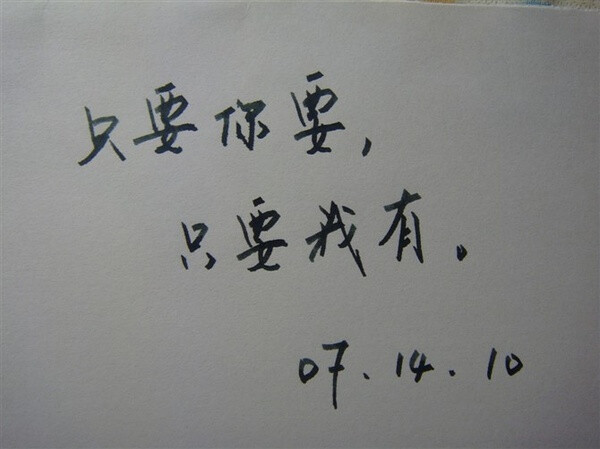 只要你要，
只要我有。
07.14.10